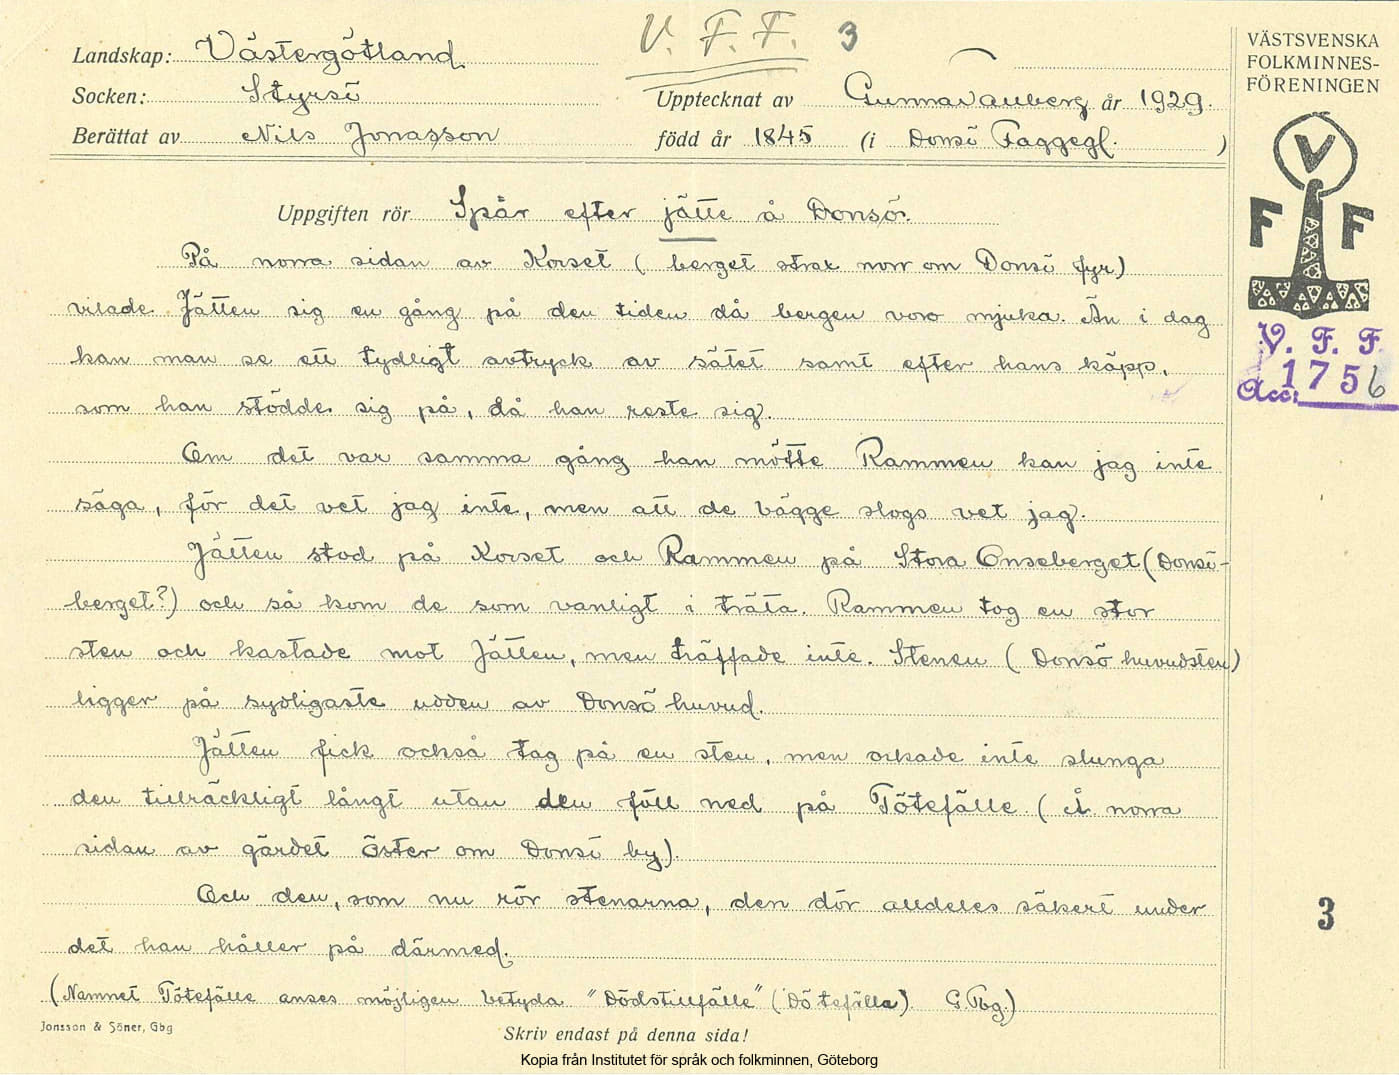 V. F. F. 3
Landskap: Västergötland
Socken: Styrsö
Upptecknat av Gunnar år 1929.
Berättat av Nils Jonasson född år 1845 (i Donsö Faggegl. )
VÄSTSVENSKA
FOLKMINNES-
FÖRENINGEN
V
F F
V. F. F.
Acc: 1756
Uppgiften rör Spår efter jätte å Donsö.
På norra sidan av Korset (berget strax norr om Donsö fyr)
vilade Jätten sig en gång på den tiden då bergen voro mjuka. Än i dag
kan man se ett tydligt avtryck av sätet samt efter hans käpp,
som han stödde sig på, då han reste sig.
Om det var samma gång han mötte Rammen kan jag inte
säga, för det vet jag inte, men att de bägge slogs vet jag.
Jätten stod på Korset och Rammen på Stora Onseberget (Donsö-
berget?) och så kom de som vanligt i träta. Rammen tog en stor
sten och kastade mot Jätten, men träffade inte. Stenen (Donsö huvudsten)
ligger på sydligaste udden av Donsö huvud.
Jätten fick också tag på en sten, men orkade inte slunga
den tillräckligt långt utan den föll ned på Tötefälle. (Å norra
sidan av gärdet öster om Donsö by).
Och den, som nu rör stenarna, den dör alldeles säkert under
det han håller på därmed.
3
(Namnet Tötefälle anses möjligen betyda "Dödstillfälle" (Dötefälla). G. Tbg.)
Jonsson & Söner, Gbg
Skriv endast på denna sida!
Kopia från Institutet för språk och folkminnen, Göteborg